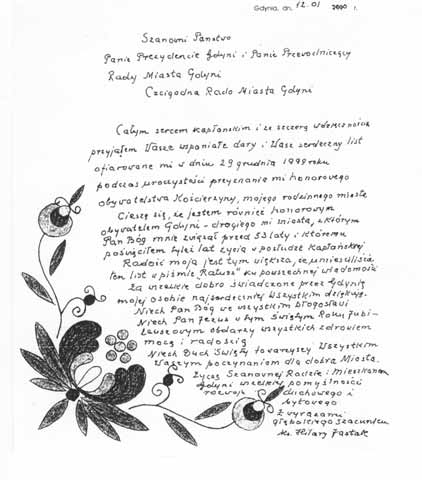 Gdynia, dn. 12.01 2000 r.
Szanowni Państwo
Panie Prezydencie Gdyni i Panie Przewodniczący
Rady Miasta Gdyni
Czcigodna Rado Miasta Gdyni
Całym sercem kapłańskim i ze szczerą wdzięcznością
przyjąłem Wasze wspaniałe dary i Wasz serdeczny list
ofiarowane mi w dniu 29 grudnia 1999 roku
podczas uroczystości przyznania mi honorowego
obywatelstwa Kościerzyny, mojego rodzinnego miasta
Cieszę się, że jestem również honorowym
obywatelem Gdyni - drogiego mi miasta, z którym
Pan Bóg mnie związał przed 53 laty i któremu
poświęciłem tyleż lat życia w posłudze kapłańskiej.
Radość moja jest tym większa, że umieściliście
ten list w piśmie "Ratusz" ku powszechnej wiadomości
Za wszelkie dobro świadczone przez Gdynię
mojej osobie najserdeczniej Wszystkim dziękuję.
Niech Pan Bóg we wszystkim błogosławi
Niech Pan Jezus w tym Świętym Roku Jubi-
leuszowym obdarzy wszystkich zdrowiem
mocą i radością
Niech Duch Święty towarzyszy Wszystkim
Waszym poczynaniom dla dobra Miasta.
Życzę Szanownej Radzie i Mieszkańcom
Gdyni wszelkiej pomyślności
rozwoju duchowego i
bytowego
Z wyrazami
głębokiego szacunku
ks. Hilary Jastak